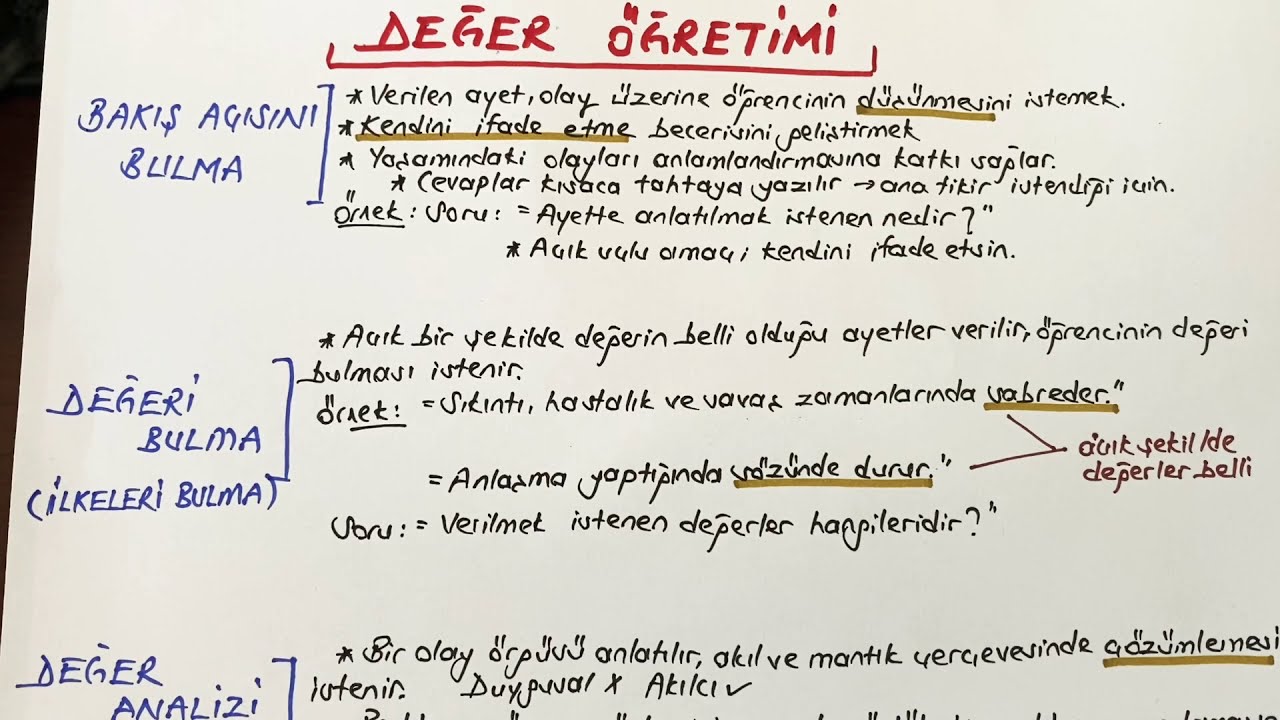 DEĞER ÖĞRETİMİ
BAKIŞ AÇISINI
BULMA
* Verilen ayet, olay üzerine öğrencinin düşünmesini istemek.
* Kendini ifade etme becerisini geliştirmek
* Yaşamındaki olayları anlamlandırmasına katkı sağlar.
* Cevaplar kısaca tahtaya yazılır → ana fikir istendiği için.
Örnek: Soru: = Ayette anlatılmak istenen nedir?"
* Açık uçlu amaç; kendini ifade etsin.
DEĞERİ
BULMA
(İLKELERİ BULMA)
* Açık bir şekilde değerin belli olduğu ayetler verilir, öğrencinin değeri
bulması istenir.
Örnek: = Sıkıntı, hastalık ve savaş zamanlarında sabreder."
= Anlaşma yaptığında sözünde durur."
açık şekilde
değerler belli
Soru: = Verilmek istenen değerler hangileridir?"
DEĞER
ANALİZİ
* Bir olay örgüsü anlatılır, akıl ve mantık çerçevesinde çözümlemesi
istenir. Duygusal x Akılcı ✓